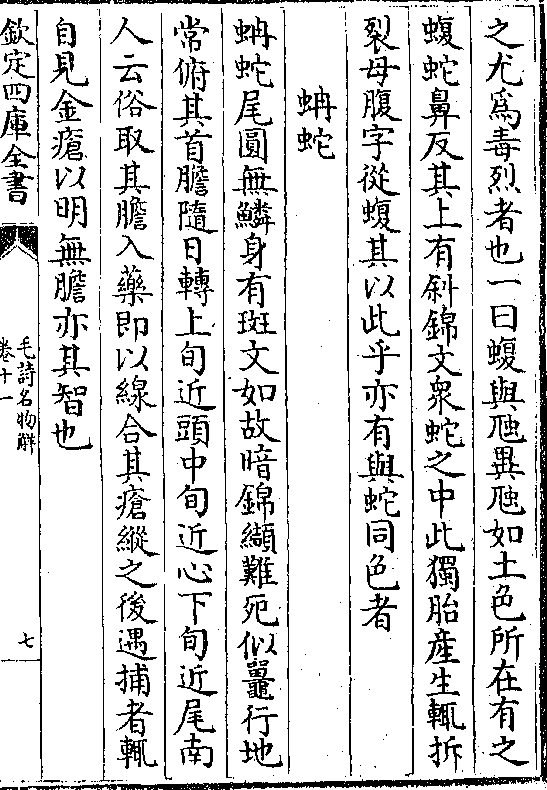 之尤為毒烈者也一曰蝮與虺異虺如土色所在有之
蝮蛇鼻反其上有斜錦文衆蛇之中此獨胎産生輒拆
裂母腹字從蝮其以此乎亦有與蛇同色者
蚺蛇
蚺蛇尾圓無鱗身有斑文如故暗錦纈難死似鼉行地
常俯其首膽隨日轉上旬近頭中旬近心下旬近尾南
人云俗取其膽入藥即以線合其瘡縱之後遇捕者輒
自見金瘡以明無膽亦其智也
欽定四庫全書
毛詩名物解
卷十一
七